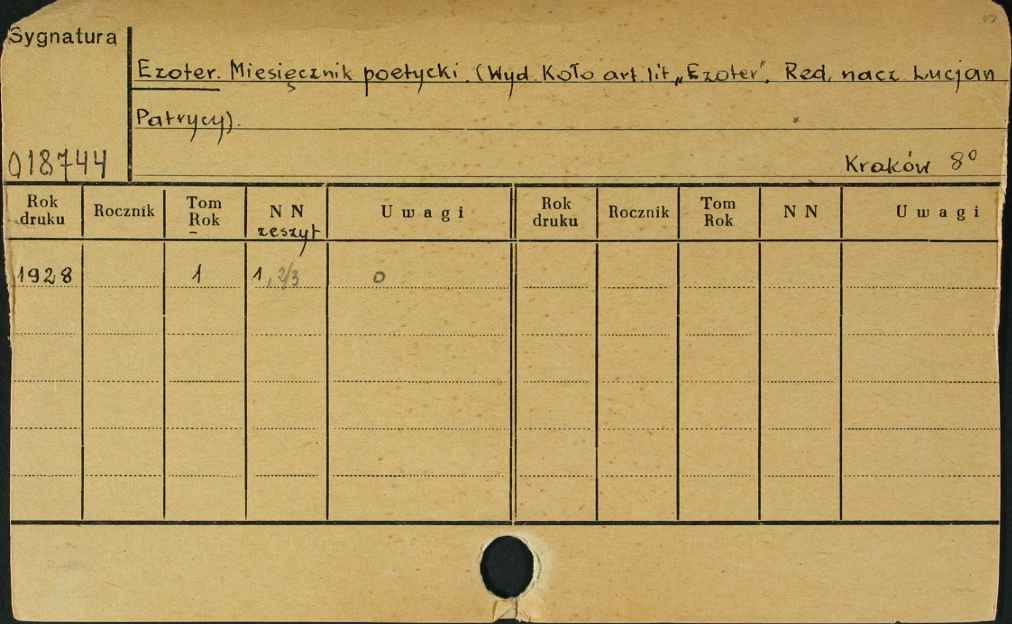 Sygnatura
Ezoter. Miesięcznik poetycki. (Wyd. Koło art. lit. „Ezoter”. Red. nacz. Lucjan
Patrycy).
018744
Kraków 8°
Rok druku Rocznik Tom Rok NN zeszyt Uwagi Rok druku Rocznik Tom Rok NN Uwagi
1928 1 1, 2/3 0